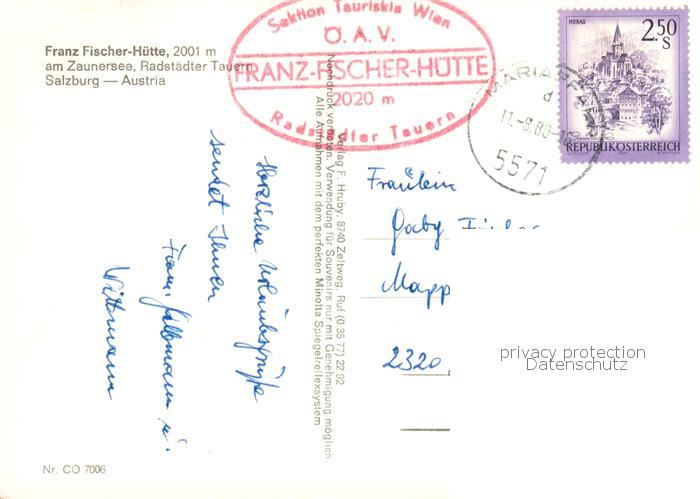 Franz Fischer-Hütte, 2001 m
am Zaunersee, Radstädter Tauern
Salzburg — Austria
Sektion Tauriskia Wien
Ö. A. V.
FRANZ-FISCHER-HÜTTE
2020 m
Radstädter Tauern
MARIAPFARR
d
11.-8.80-
5571
MURAU
2.50
S
REPUBLIK ÖSTERREICH
Herzliche Urlaubsgrüße
sendet Ihnen
Fam. u.
Wittmann
Verlag F. Hruby, 8740 Zeltweg, Ruf (0 35 77) 22 92
Nachdruck verboten. Verwendung für Souvenirs nur mit Genehmigung möglich.
Alle Aufnahmen mit dem perfekten Minolta Spiegelreflexsystem
Fräulein
Gaby
Mapp
2320
privacy protection
Datenschutz
Nr. CO 7006